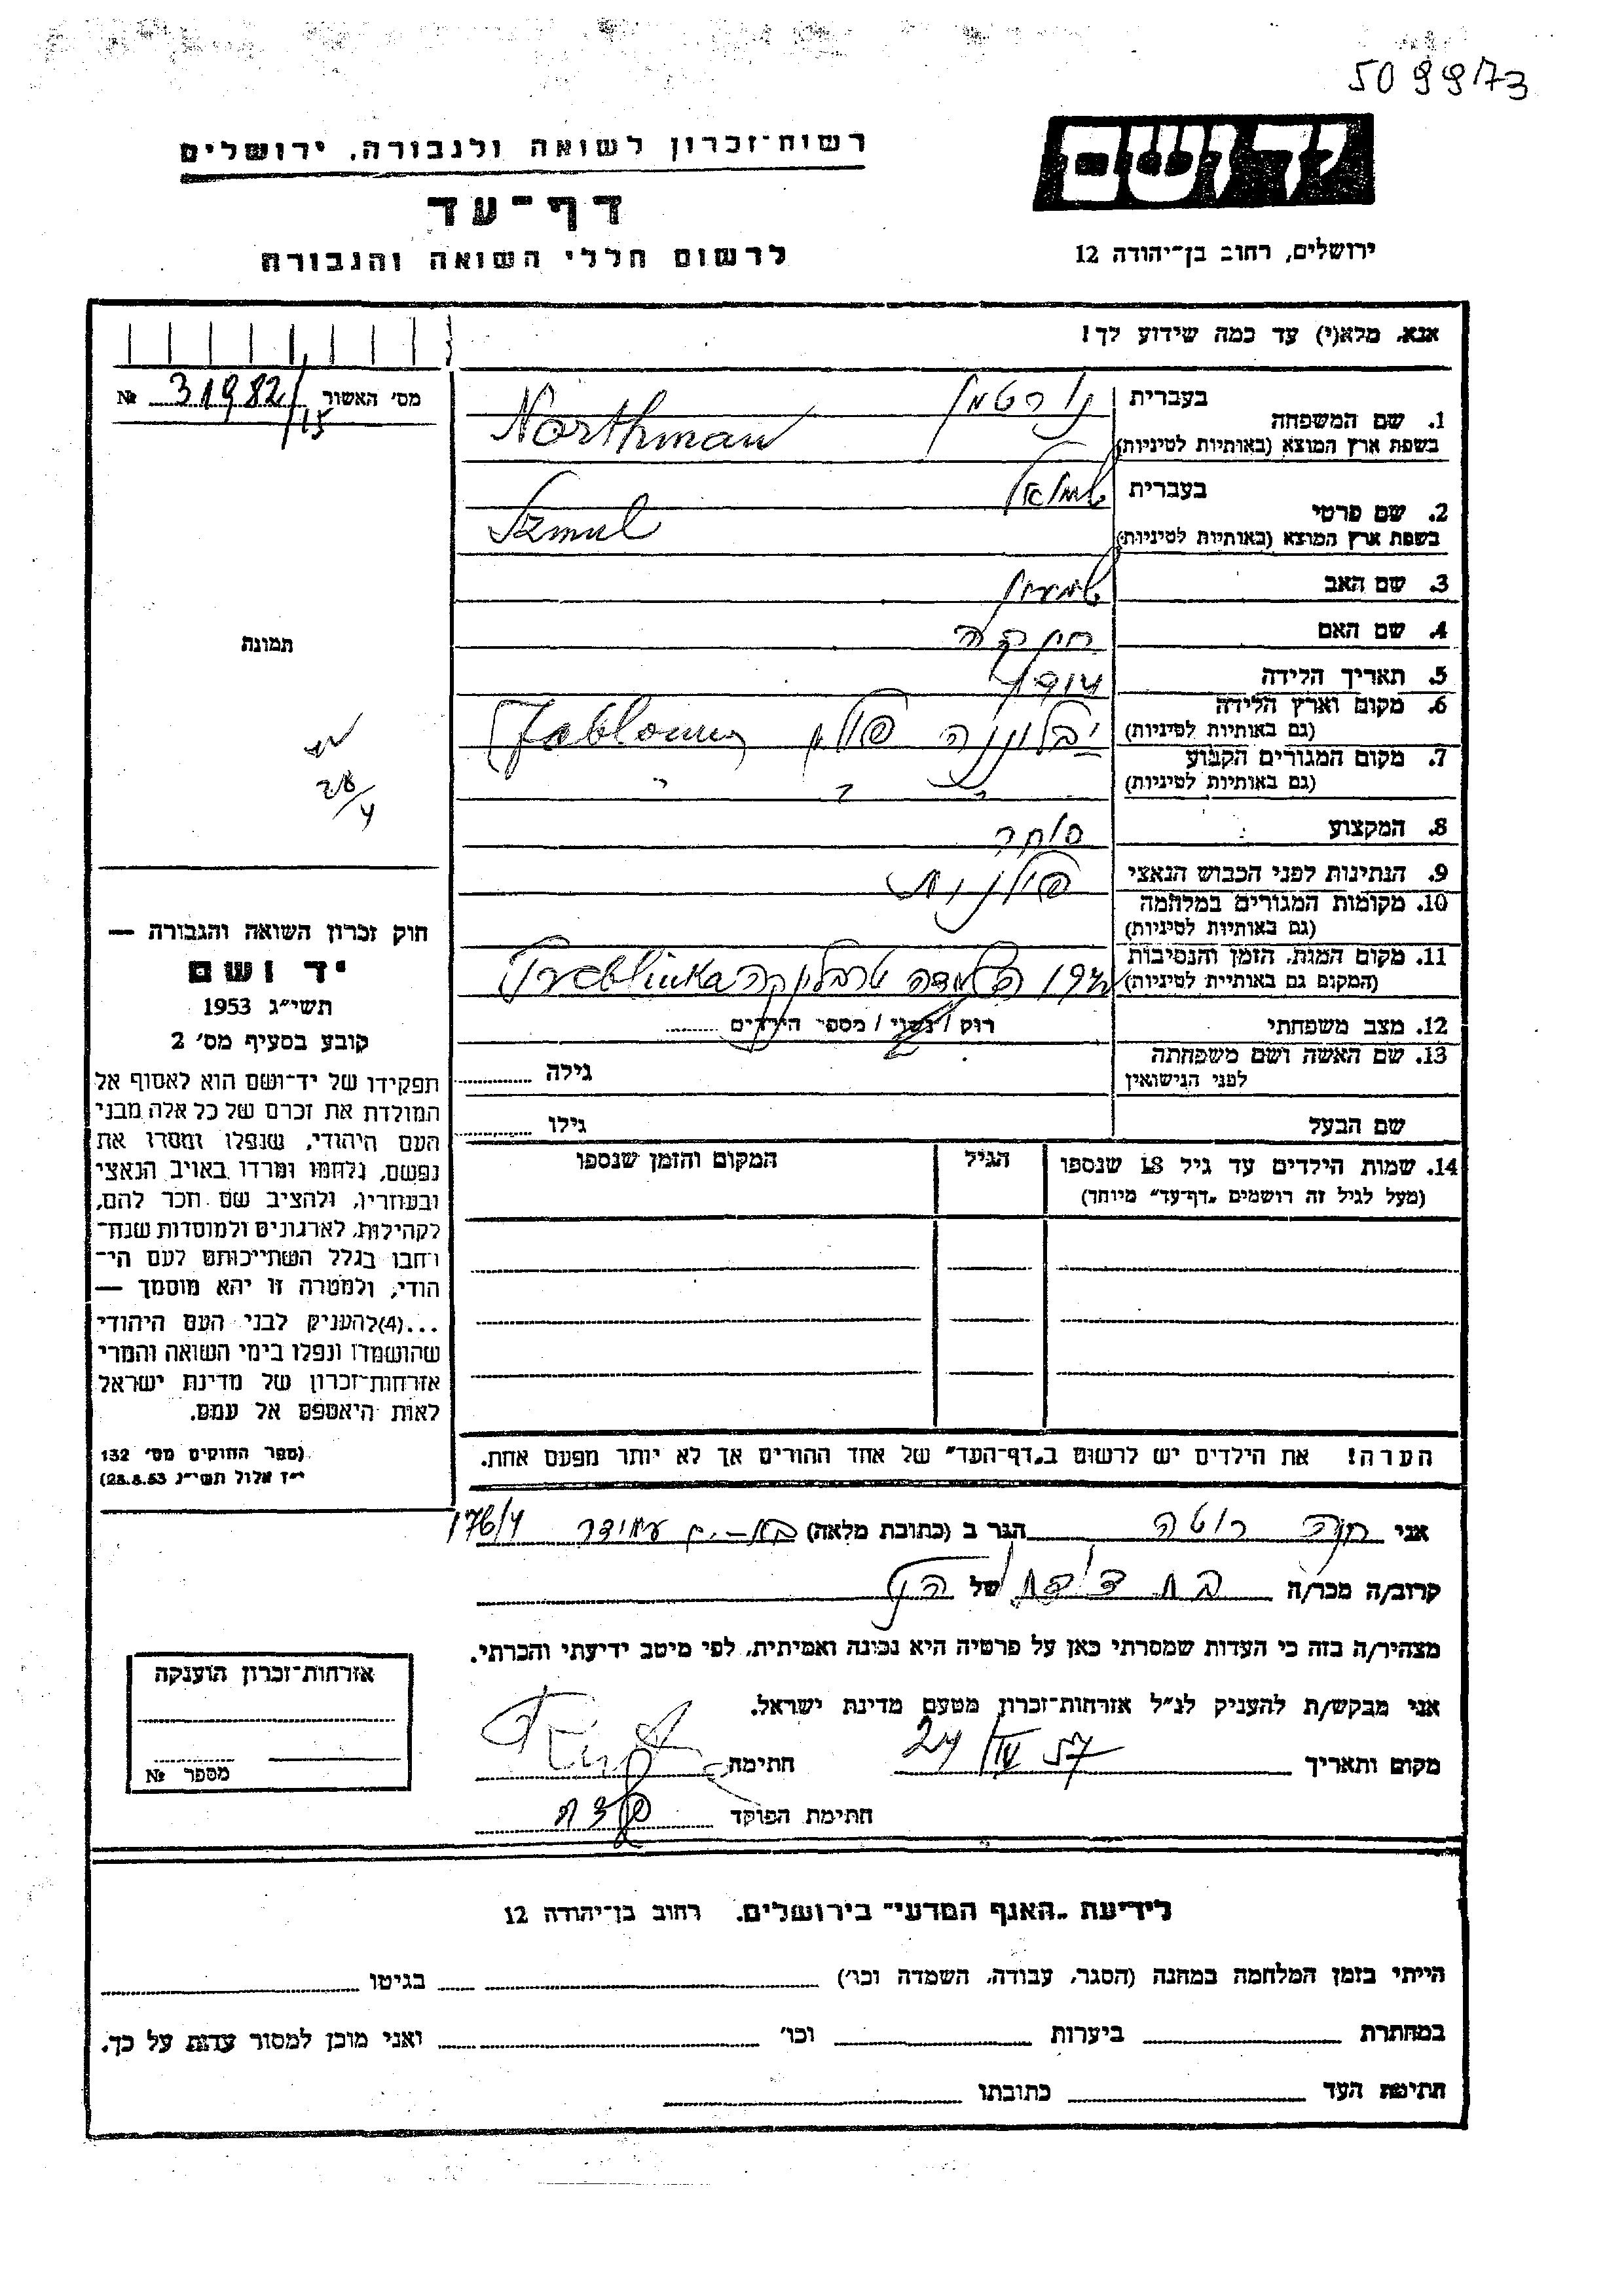 5099173
יד ושם
רשות־זכרון לשואה ולגבורה, ירושלים
דף־עד
לרשום חללי השואה והגבורה
ירושלים, רחוב בן־יהודה 12
אנא, מלא(י) עד כמה שידוע לך!
מס' האשור 31982/15 №
1. שם המשפחה
בעברית נורטמן
בשפת ארץ המוצא (באותיות לטיניות) Northman
2. שם פרטי
בעברית שמואל
בשפת ארץ המוצא (באותיות לטיניות) Szmul
3. שם האב שמעון
4. שם האם
5. תאריך הלידה
6. מקום וארץ הלידה
(גם באותיות לטיניות) יבלונה פולין
7. מקום המגורים הקבוע
(גם באותיות לטיניות) " " "
8. המקצוע סוחר
9. הנתינות לפני הכבוש הנאצי פולנית
10. מקומות המגורים במלחמה
(גם באותיות לטיניות)
11. מקום המות, הזמן והנסיבות
(המקום גם באותיית לטיניות) טרבלינקה Treblinka
12. מצב משפחתי רוק / נשוי / מספר הילדים
13. שם האשה ושם משפחתה
לפני הנישואין גילה
שם הבעל גילו
14. שמות הילדים עד גיל 18 שנספו הגיל המקום והזמן שנספו
(מעל לגיל זה רושמים „דף־עד" מיוחד)
הערה! את הילדים יש לרשום ב„דף־העד" של אחד ההורים אך לא יותר מפעם אחת.
תמונה
28/4
חוק זכרון השואה והגבורה —
יד ושם
תשי"ג 1953
קובע בסעיף מס' 2
תפקידו של יד־ושם הוא לאסוף אל
המולדת את זכרם של כל אלה מבני
העם היהודי, שנפלו ומסרו את
נפשם, נלחמו ומרדו באויב הנאצי
ובעוזריו, ולהציב שם וזכר להם,
לקהילות, לארגונים ולמוסדות שנח־
רבו בגלל השתייכותם לעם הי־
הודי, ולמטרה זו יהא מוסמך —
...(4)להעניק לבני העם היהודי
שהושמדו ונפלו בימי השואה והמרי
אזרחות־זכרון של מדינת ישראל
לאות היאספם אל עמם.
(ספר החוקים מס' 132
י"ז אלול תשי"ג 28.8.53)
אני חנה רוטה הגר ב (כתובת מלאה) בת־ים עמידר 176/4
קרוב/ה מכר/ה בת דודה של הנ"ל
מצהיר/ה בזה כי העדות שמסרתי כאן על פרטיה היא נכונה ואמיתית, לפי מיטב ידיעתי והכרתי.
אני מבקש/ת להעניק לנ"ל אזרחות־זכרון מטעם מדינת ישראל.
מקום ותאריך 24/IV 57 חתימה
חתימת הפוקד
אזרחות־זכרון הוענקה
מספר №
לידיעת „האגף המדעי" בירושלים, רחוב בן־יהודה 12
הייתי בזמן המלחמה במחנה (הסגר, עבודה, השמדה וכו') בגיטו
במחתרת ביערות וכו' ואני מוכן למסור עדות על כך.
חתימת העד כתובתו